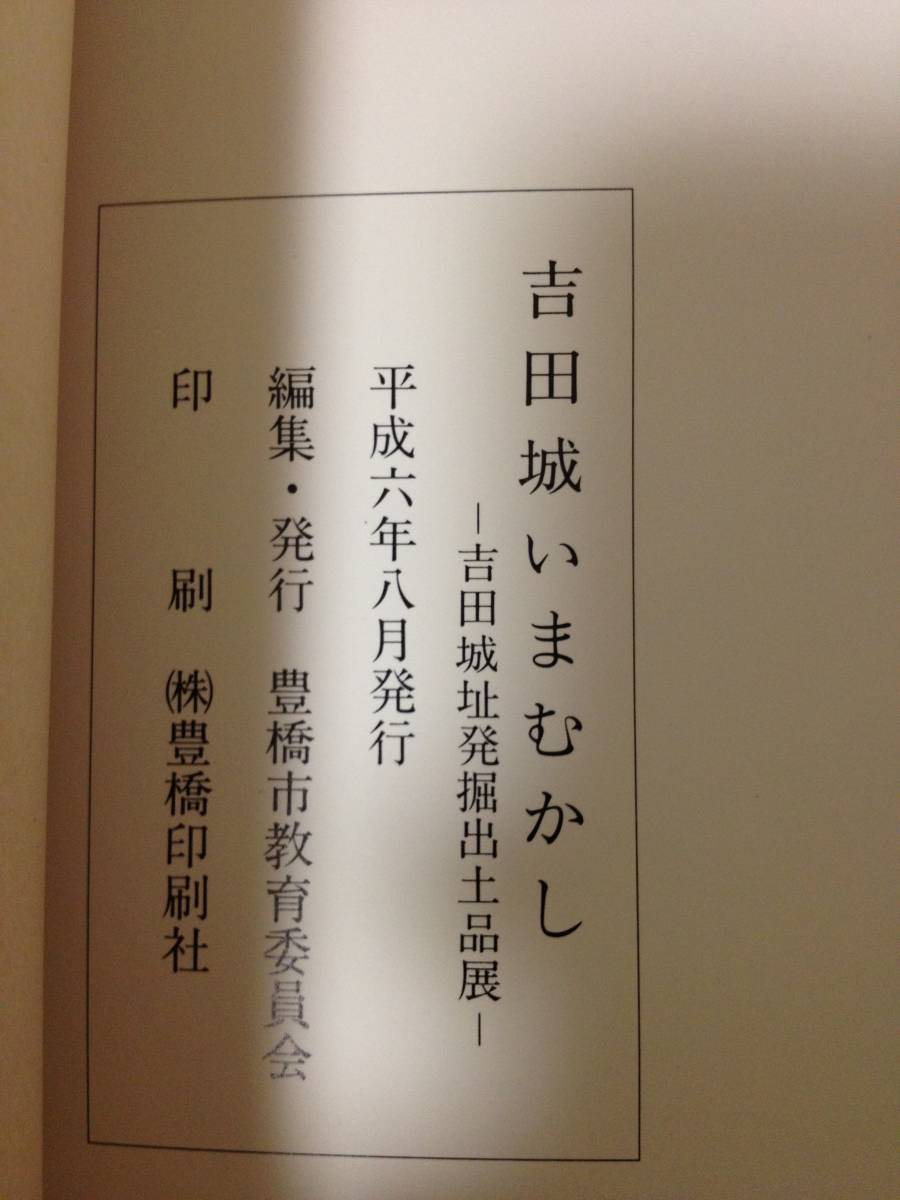 吉田城いまむかし
―吉田城址発掘出土品展―
平成六年八月発行
編集・発行　豊橋市教育委員会
印　　刷　㈱豊橋印刷社